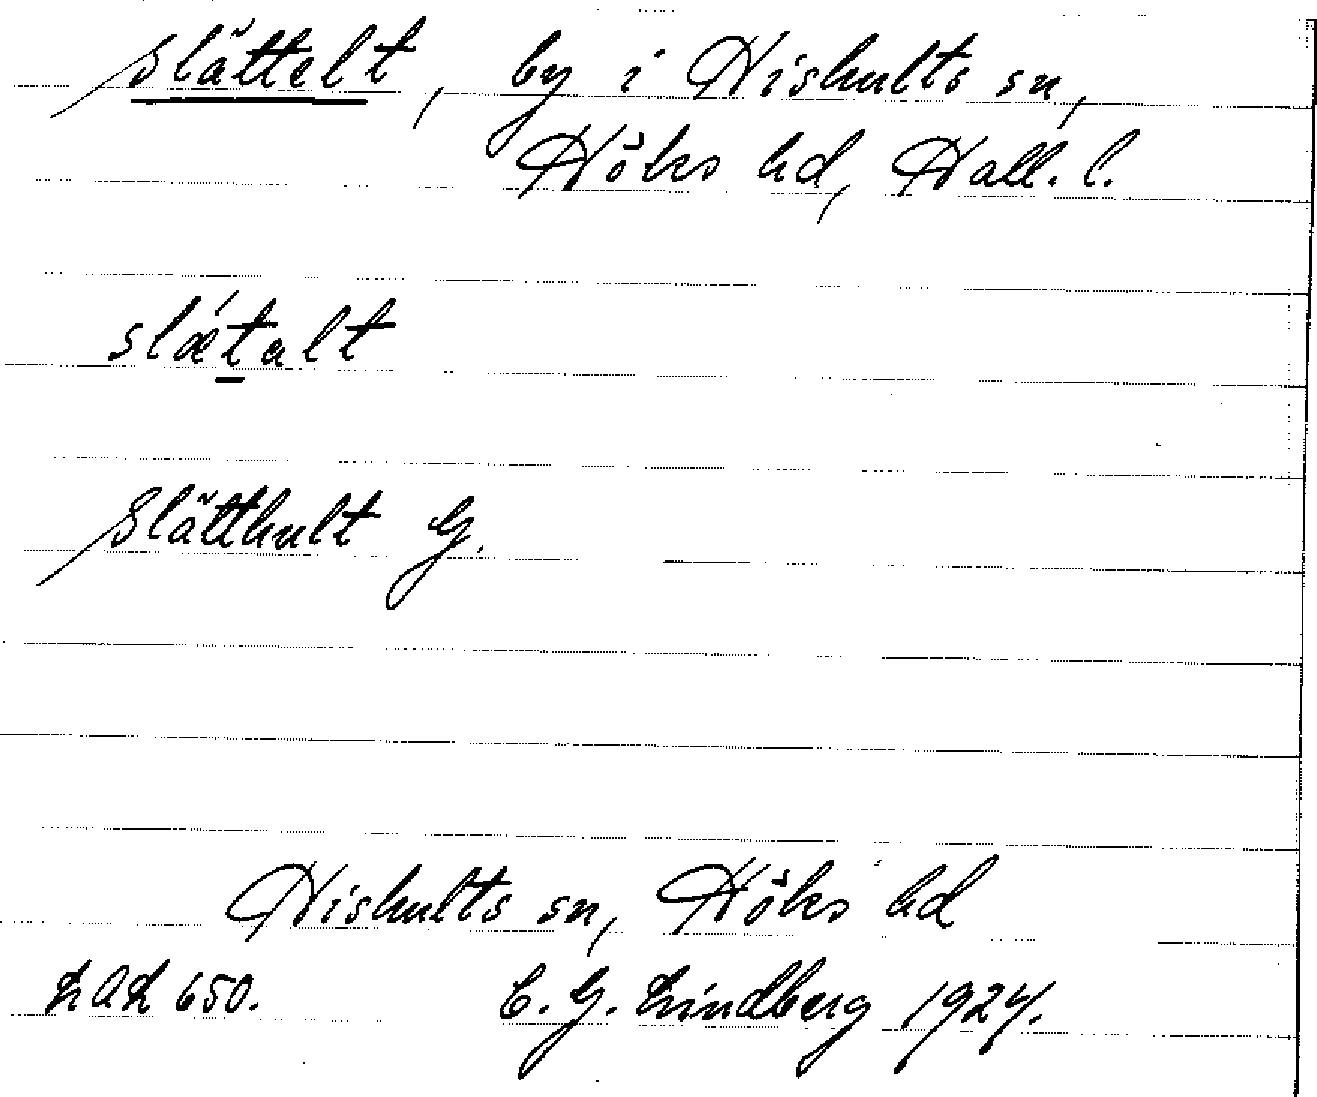 Slättelt, by i Hishults sn,
Höks hd, Hall. l.
slǽtalt
Slätthult G.
Hishults sn, Höks hd
LAL 650. C. G. Lindberg 1924.